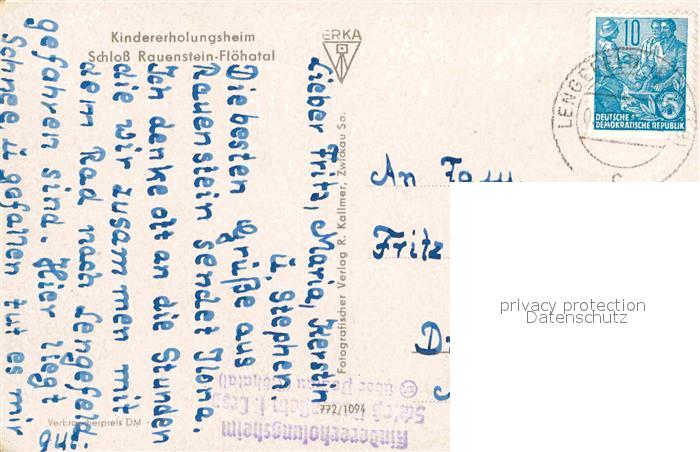 Kindererholungsheim
Schloß Rauenstein-Flöhatal
ERKA
10
5
DEUTSCHE
DEMOKRATISCHE REPUBLIK
LENGEF
Lieber Fritz, Maria, Kerstin
ü Stephen
Die besten Grüße aus
Rauenstein sendet Ilona.
Ich denke oft an die Stunden
die wir zusammen mit
dem Rad nach Lengefeld
gefahren sind. Hier liegt
Schnee ü gefallen tut es mir
gut
Fotografischer Verlag R. Kallmer, Zwickau Sa.
An Fam.
Fritz
privacy protection
Datenschutz
Kindererholungsheim
772/1094
Verbraucherpreis DM